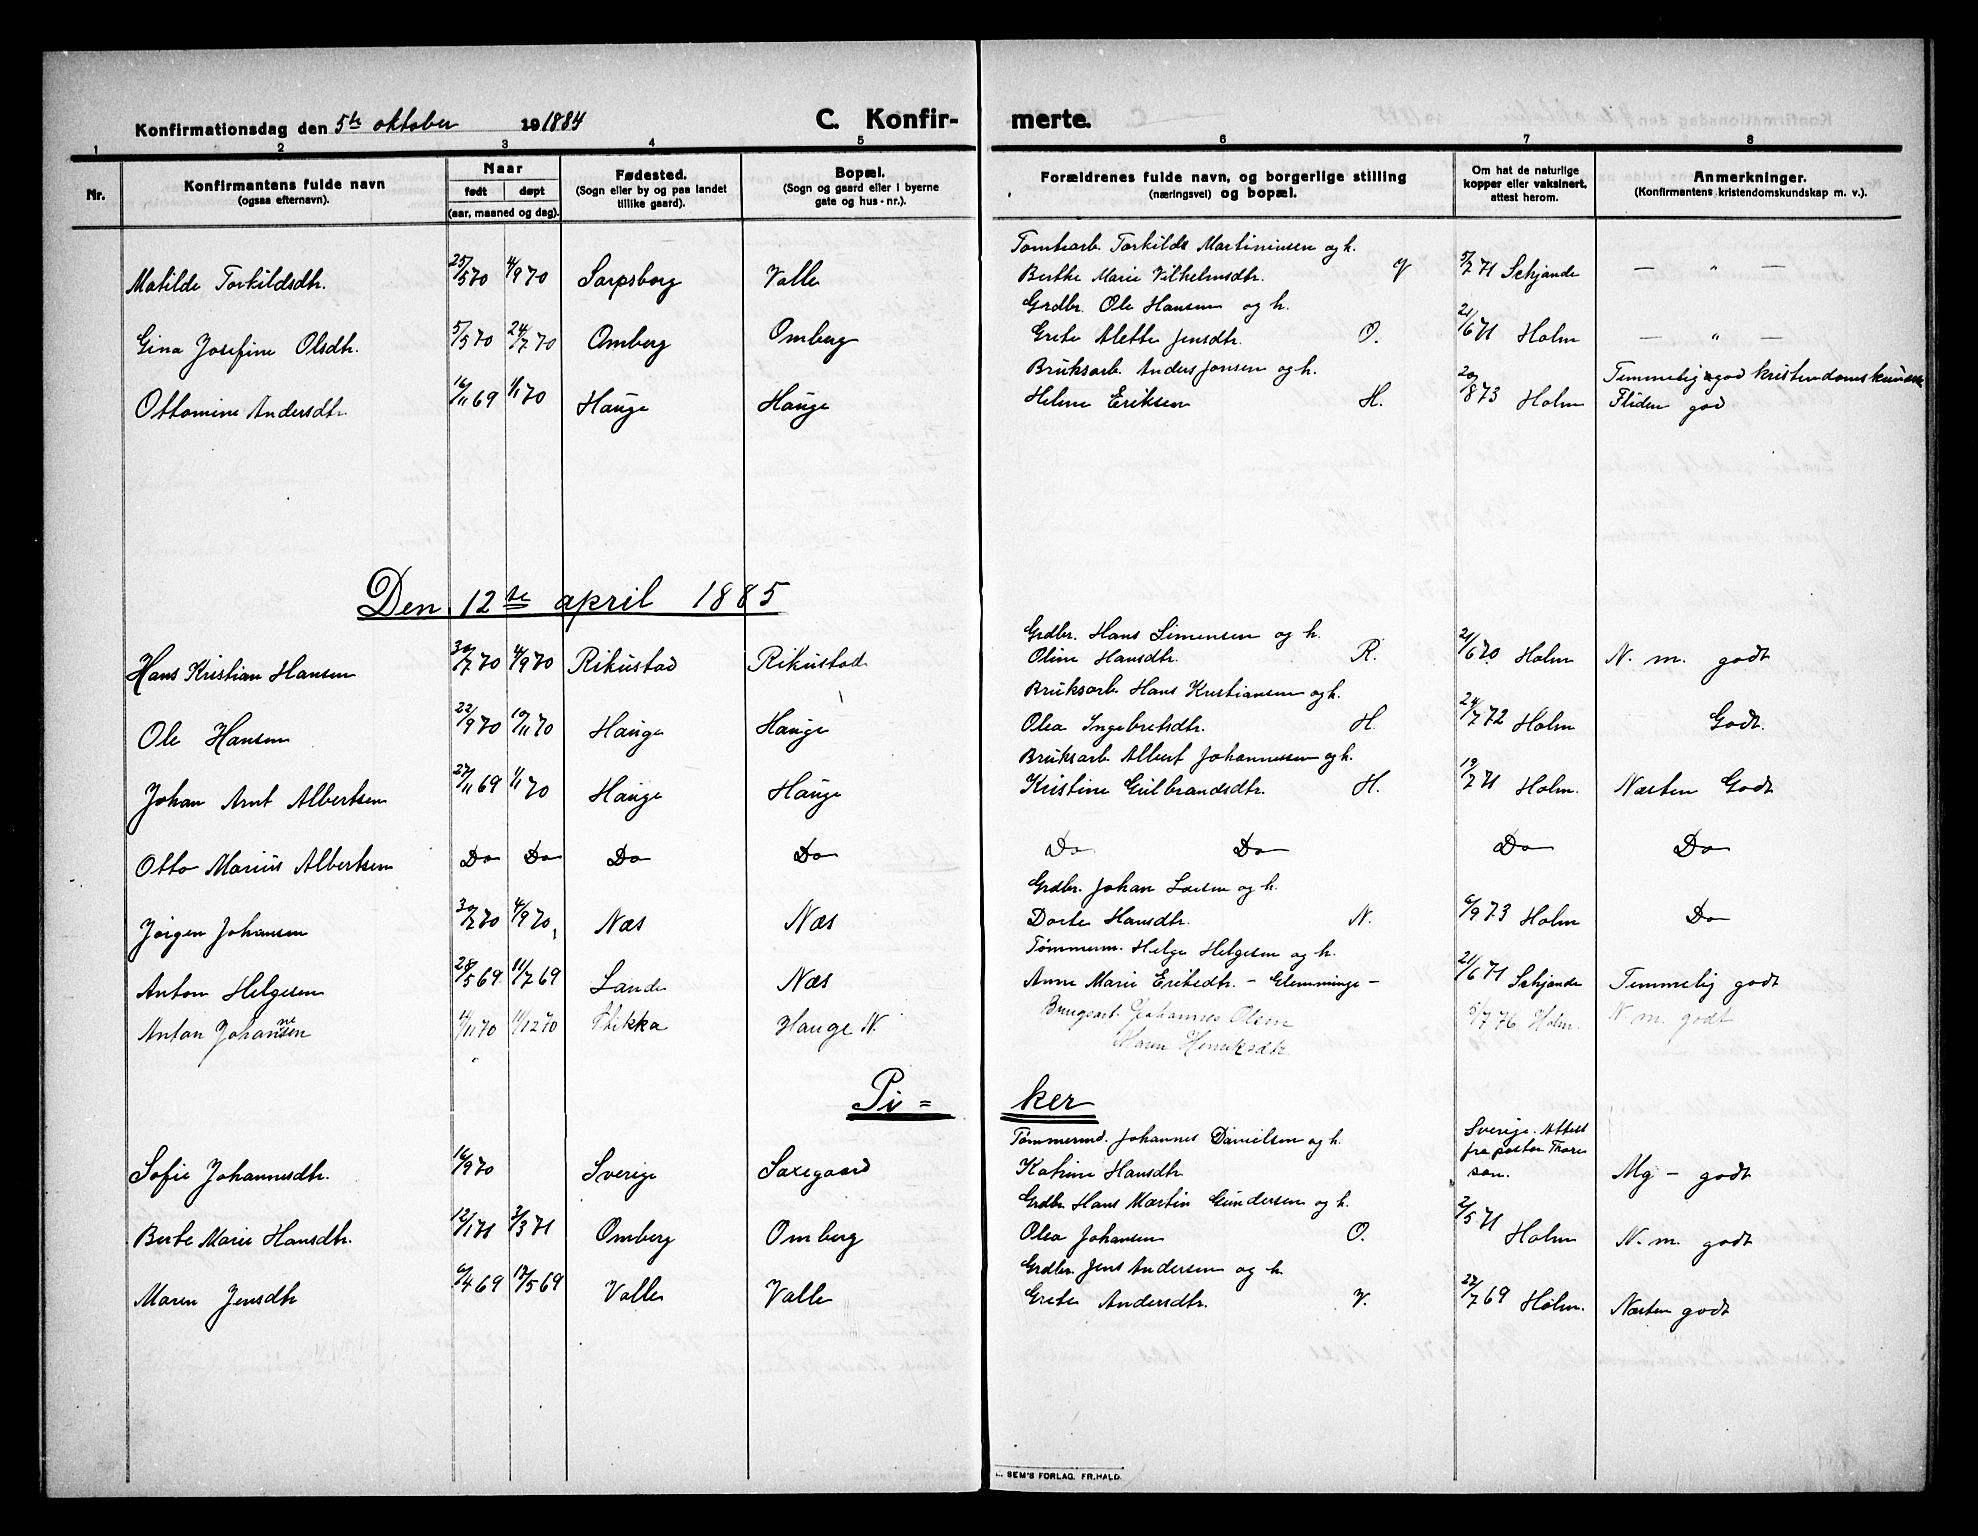 Konfirmationsdag den 5te oktober 19 1884 C. Konfir- merte.
1 2 3 4 5 6 7 8
Nr. Konfirmantens fulde navn (ogsaa efternavn). Naar født døpt (aar, maaned og dag). Fødested. (Sogn eller by og paa landet tillike gaard). Bopæl. (Sogn og gaard eller i byerne gate og hus-nr.). Forældrenes fulde navn, og borgerlige stilling (næringsvei) og bopæl. Om hat de naturlige kopper eller vaksinert, attest herom. Anmerkninger. (Konfirmantens kristendomskundskap m. v.).
Tomtearb. Torkilds Martiniusen og h.
Matilde Torkildsdtr. 25/5 70 4/9 70 Sarpsborg Valle Berthe Marie Vilhelmsdtr. V 5/7 71 Schjande — " —
Grdbr. Ole Hansen og h.
Gina Josefine Olsdtr. 5/5 70 24/7 70 Omberg Omberg Grete Alette Jensdtr. O. 21/6 71 Holm — " —
Bruksarb. Anders Jonsen og h. Temmelig god kristendomskundsk
Ottomine Andersdtr. 16/11 69 1/1 70 Hauge Hauge Helene Eriksen H. 20/8 73 Holm Fliden god
Den 12te april 1885
Grdbr. Hans Simensen og h.
Hans Kristian Hansen 30/7 70 4/9 70 Rikustad Rikustad Oline Hansdtr. R. 21/6 70 Holm N. m. godt
Bruksarb. Hans Kristiansen og h.
Ole Hansen 22/9 70 10/11 70 Hauge Hauge Olea Ingebretsdtr. H. 24/7 72 Holm Godt.
Bruksarb. Albert Johannessen og h.
Johan Arnt Albertsen 27/11 69 1/1 70 Hauge Hauge Kristine Gulbrandsdtr. H. 19/7 71 Holm. Næsten Godt
Otto Marius Albertsen Do Do Do Do Do Do Do Do
Grdbr. Johan Larsen og h.
Jørgen Johansen 30/7 70 4/9 70, Næs Næs Dorte Hansdtr. N. 6/9 73 Holm Do
Tømmerm. Helge Helgesen og h.
Anton Helgesen 28/5 69 11/7 69 Lande Næs Anne Marie Eriksdtr. - Glemminge - 21/6 71 Schjande Temmelig godt
Anton Johannesen 14/11 70 11/12 70 Hauge N. Brugsarb. Johannes Olsen 5/7 76 Holm. N. m. godt
Maren Henriksdtr.
Pi= ker
Tømmermd. Johannes Danielsen og h. Sverige. Attest
fra pastor Thore
Sofie Johannesdtr. 16/9 70 Sverige Saxegaard Katrine Hansdtr. son. Mg - godt
Grdbr. Hans Martin Gundersen og h.
Berte Marie Hansdtr. 12/1 71 2/3 71 Omberg Omberg Olea Johansen O. 2/5 71 Holm N. m. godt
Grdbr. Jens Andersen og h.
Maren Jensdtr 6/4 69 17/5 69 Valle Valle Grete Andersdtr. V. 22/7 69 Holm. Næsten godt
SEM'S FORLAG, FR.HALD.